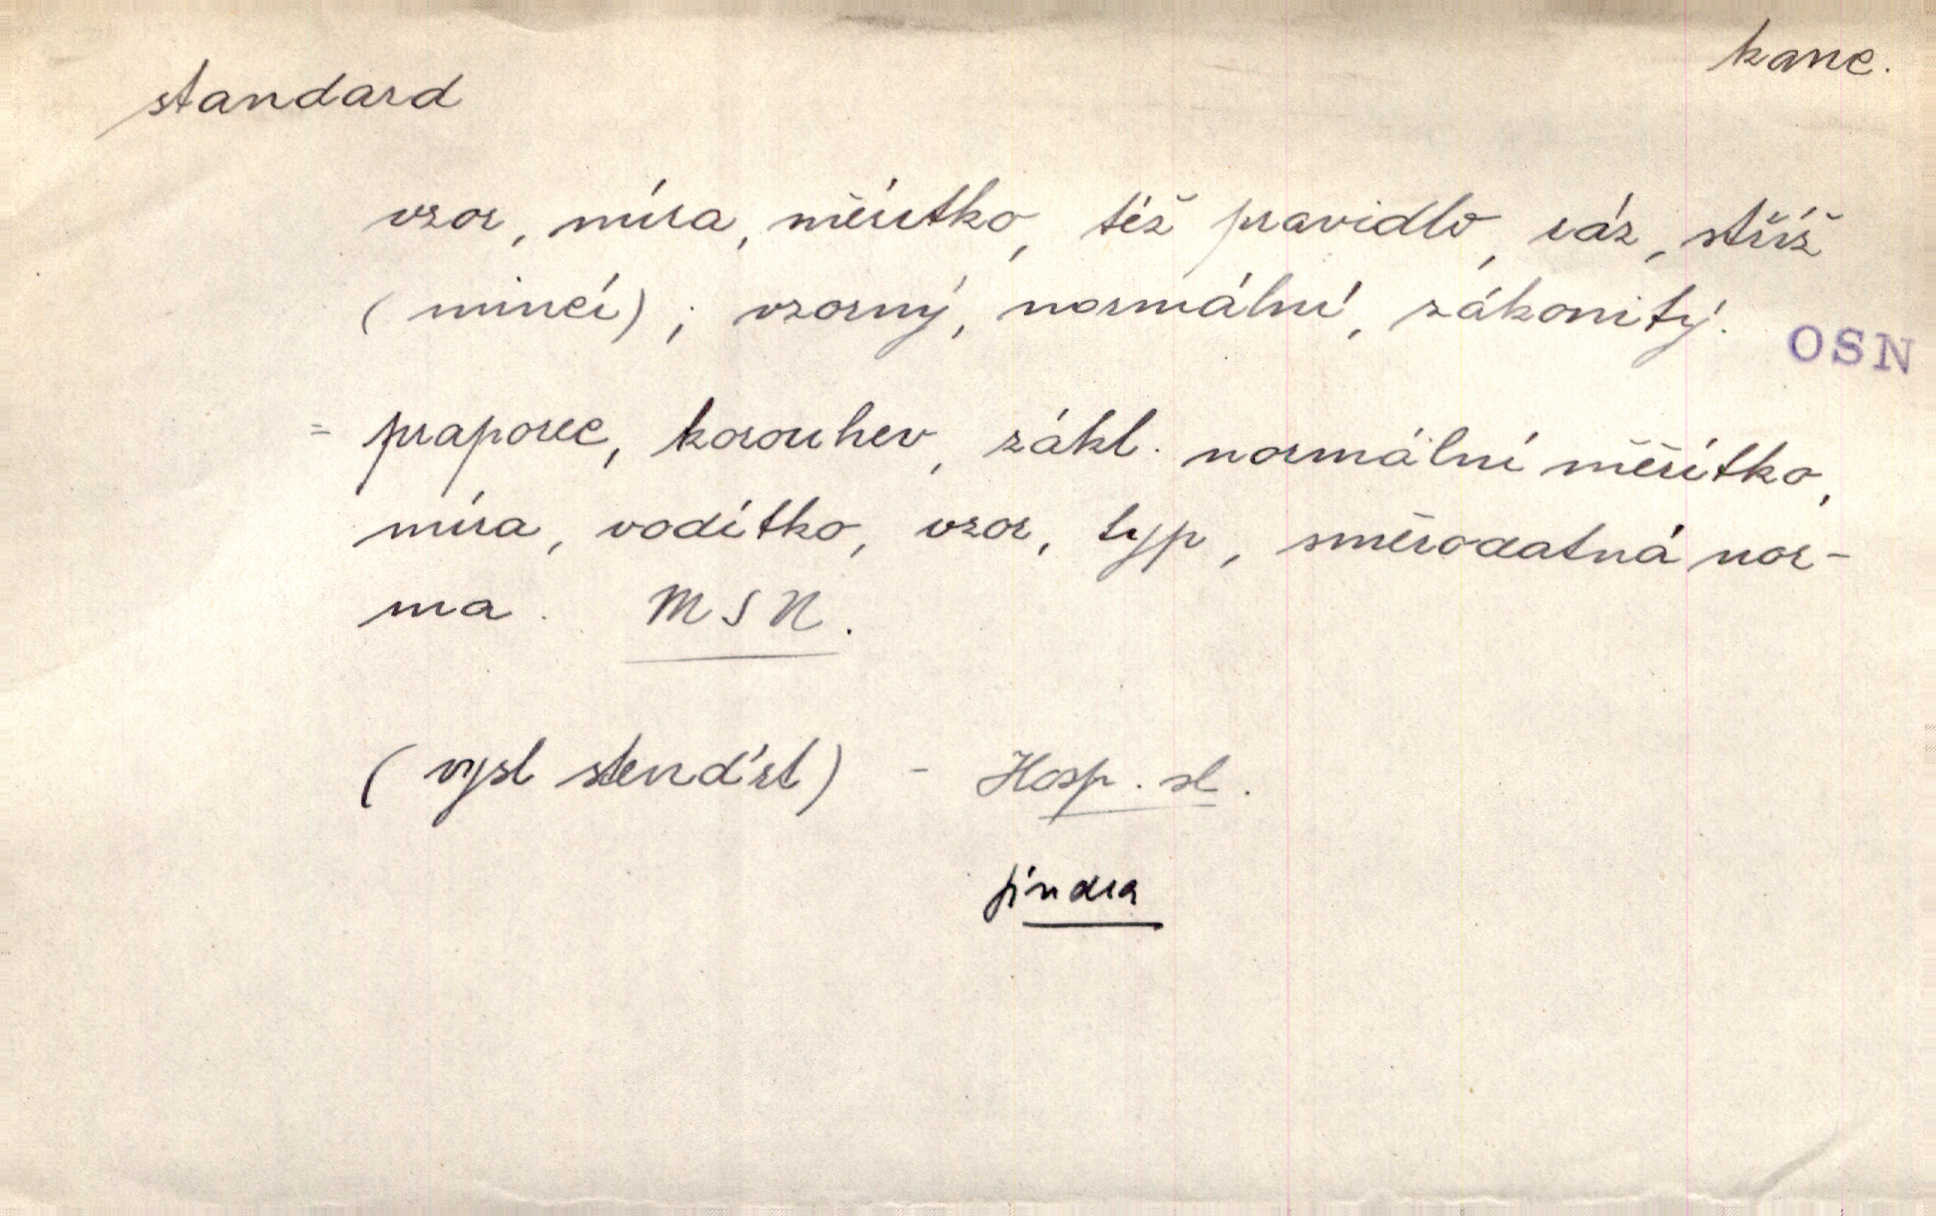 kanc.
standard
vzor, míra, měřítko, též pravidlo, ráz, stříž
(mincí); vzorný, normální, zákonitý.
OSN
= praporec, korouhev, zákl. normální měřítko,
míra, vodítko, vzor, typ, směrodatná nor-
ma. MSN.
(vysl stend'rt) - Hosp. sl.
jindra